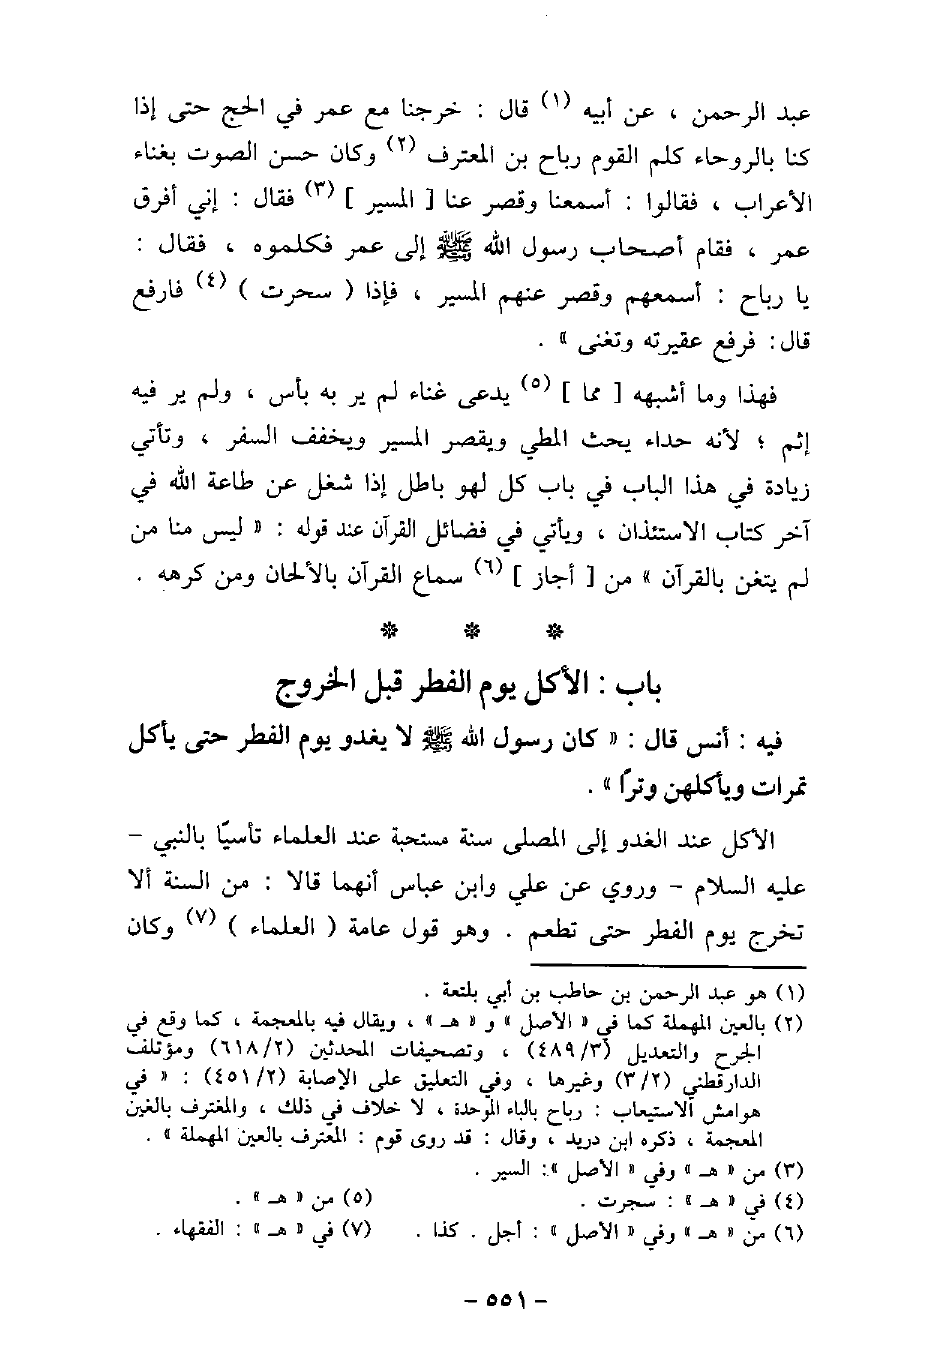 عبد الرحمن ، عن أبيه (١) قال : خرجنا مع عمر في الحج حتى إذا
كنا بالروحاء كلم القوم رباح بن المعترف (٢) وكان حسن الصوت بغناء
الأعراب ، فقالوا : أسمعنا وقصر عنا [ المسير ] (٣) فقال : إني أفرق
عمر ، فقام أصحاب رسول الله ﷺ إلى عمر فكلموه ، فقال :
يا رباح : أسمعهم وقصر عنهم المسير ، فإذا ( سحرت ) (٤) فارفع
قال : فرفع عقيرته وتغنى » .
فهذا وما أشبهه [ مما ] (٥) يدعى غناء لم ير به بأس ، ولم ير فيه
إثم ؛ لأنه حداء يحث المطي ويقصر المسير ويخفف السفر ، وتأتي
زيادة في هذا الباب في باب كل لهو باطل إذا شغل عن طاعة الله في
آخر كتاب الاستئذان ، ويأتي في فضائل القرآن عند قوله : « ليس منا من
لم يتغن بالقرآن » من [ أجاز ] (٦) سماع القرآن بالألحان ومن كرهه .
* * *
باب : الأكل يوم الفطر قبل الخروج
فيه : أنس قال : « كان رسول الله ﷺ لا يغدو يوم الفطر حتى يأكل
تمرات ويأكلهن وترًا » .
الأكل عند الغدو إلى المصلى سنة مستحبة عند العلماء تأسيًا بالنبي -
عليه السلام - وروي عن علي وابن عباس أنهما قالا : من السنة ألا
تخرج يوم الفطر حتى تطعم . وهو قول عامة ( العلماء ) (٧) وكان
(١) هو عبد الرحمن بن حاطب بن أبي بلتعة .
(٢) بالعين المهملة كما في « الأصل » و « هـ » ، ويقال فيه بالمعجمة ، كما وقع في
الجرح والتعديل (٤٨٩/٣) ، وتصحيفات المحدثين (٦١٨/٢) ومؤتلف
الدارقطني (٣/٢) وغيرها ، وفي التعليق على الإصابة (٤٥١/٢) : « في
هوامش الاستيعاب : رباح بالباء الموحدة ، لا خلاف في ذلك ، والمغترف بالغين
المعجمة ، ذكره ابن دريد ، وقال : قد روى قوم : المعترف بالعين المهملة » .
(٣) من « هـ » وفي « الأصل »: السير .
(٤) في « هـ » : سجرت . (٥) من « هـ » .
(٦) من « هـ » وفي « الأصل » : أجل . كذا . (٧) في « هـ » : الفقهاء .
- ٥٥١ -